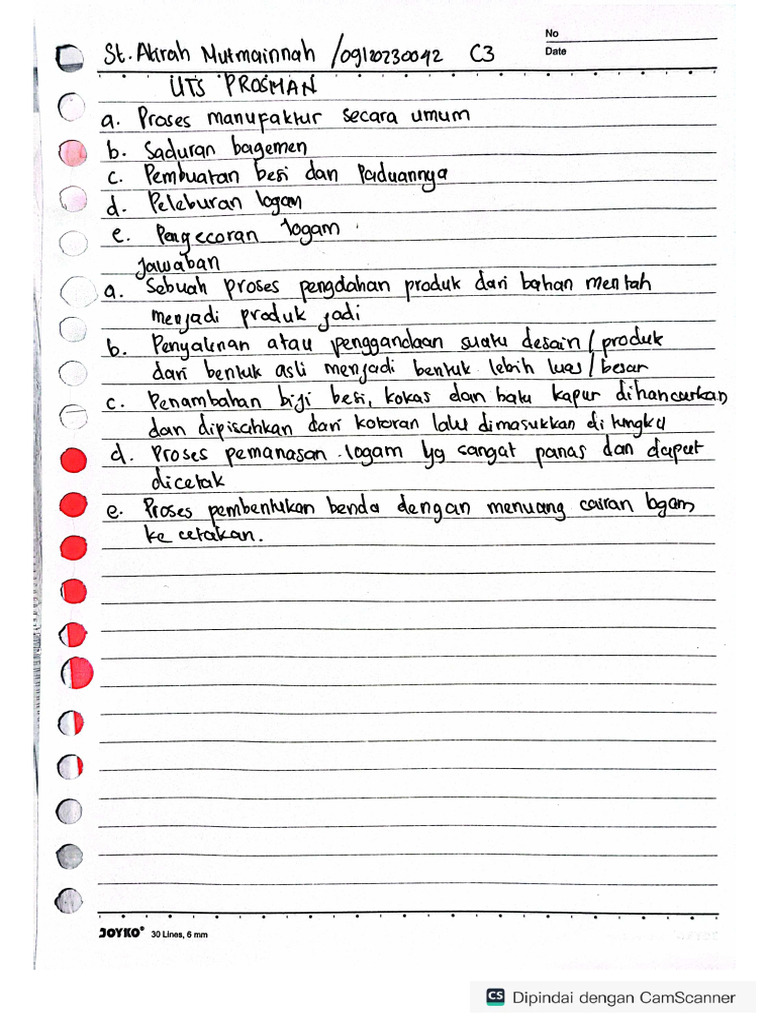 No
St. Atirah Mutmainnah /09120230042 C3
Date
UTS PROSMAN
a. Proses manufaktur secara umum
b. Saduran bagemen
c. Pembuatan besi dan Paduannya
d. Peleburan logam
e. Pengecoran logam
Jawaban
a. Sebuah proses pengolahan produk dari bahan mentah
menjadi produk jadi
b. Penyalinan atau penggandaan suatu desain / produk
dari bentuk asli menjadi bentuk lebih luas / besar
c. Penambahan biji besi, kokas dan batu kapur dihancurkan
dan dipisahkan dari kotoran lalu dimasukkan di tungku
d. Proses pemanasan logam yg sangat panas dan dapat
dicetak
e. Proses pembentukan benda dengan menuang cairan logam
ke cetakan.
JOYKO® 30 Lines, 6 mm
CS Dipindai dengan CamScanner